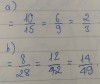 a)
= 10/15 = 6/9 = 2/3
b)
= 8/28 = 12/42 = 14/49